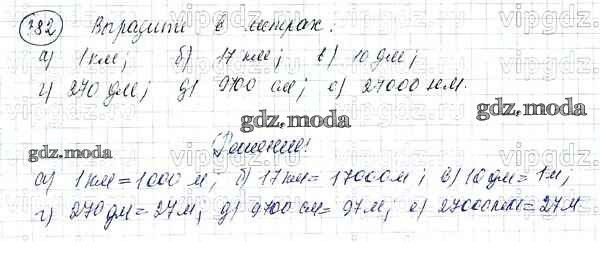 782 Выразите в метрах:
а) 1 км; б) 17 км; в) 10 дм;
г) 270 дм; д) 9700 см; е) 27000 мм.
gdz.moda gdz.moda
gdz.moda Решение!
а) 1 км = 1000 м; б) 17 км = 17000 м; в) 10 дм = 1 м;
г) 270 дм = 27 м; д) 9700 см = 97 м; е) 27000 мм = 27 м.